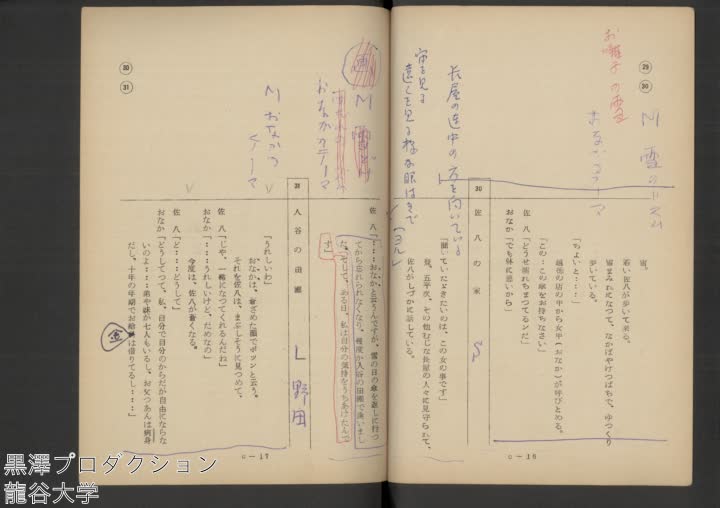 ㉙
㉚
お囃子の雪
M 雪の
おなかのテーマ
雪。
若い佐八が歩いて来る。
雪まみれになつて、なかばやけつぱちで、ゆつくり
歩いている。
「ちよいと‥‥」
越後の店の中から女中(おなか)が呼びとめる。
「この‥この傘をお持ちなさい」
佐八「どうせ濡れちまつてるンだ」
おなか「でも体に悪いから」
30
佐八の家
「聞いていただきたいのは、この女の事です」
佐八がしづかに話している。
長屋の途中の方を向いている
宙を見る
遠くを見る様な眼ざしで
C-16
㉚
㉛
M
おなかのテーマ
M おなかの
テーマ
佐八「‥‥おなかと云うんですが、雪の日の傘を返しに行つ
てから忘れられなくなり、幾度か入谷の田圃で逢いまし
た。そして、ある日、私は自分の気持をうちあけたんで
す」
31
入谷の田圃
L 野田
「うれしいわ」
おなかは、蒼ざめた顔でポツンと云う。
それを佐八は、まぶしそうに見つめて、
佐八「じや、一緒になつてくれるんだね」
おなか「‥‥うれしいけど、だめなの」
今度は、佐八が蒼くなる。
佐八「ど‥‥どうして」
おなか「どうしてつて、私、自分で自分のからだが自由にならな
いのよ‥‥弟や妹が七人もいるし、お父つあんは病身
だし、十年の年期でお給金は借りてるし‥‥」
C-17
黒澤プロダクション
龍谷大学